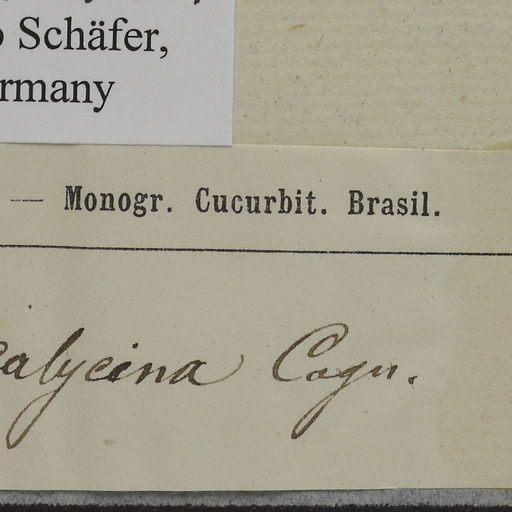 Schäfer,
rmany
— Monogr. Cucurbit. Brasil.
calycina Cogn.